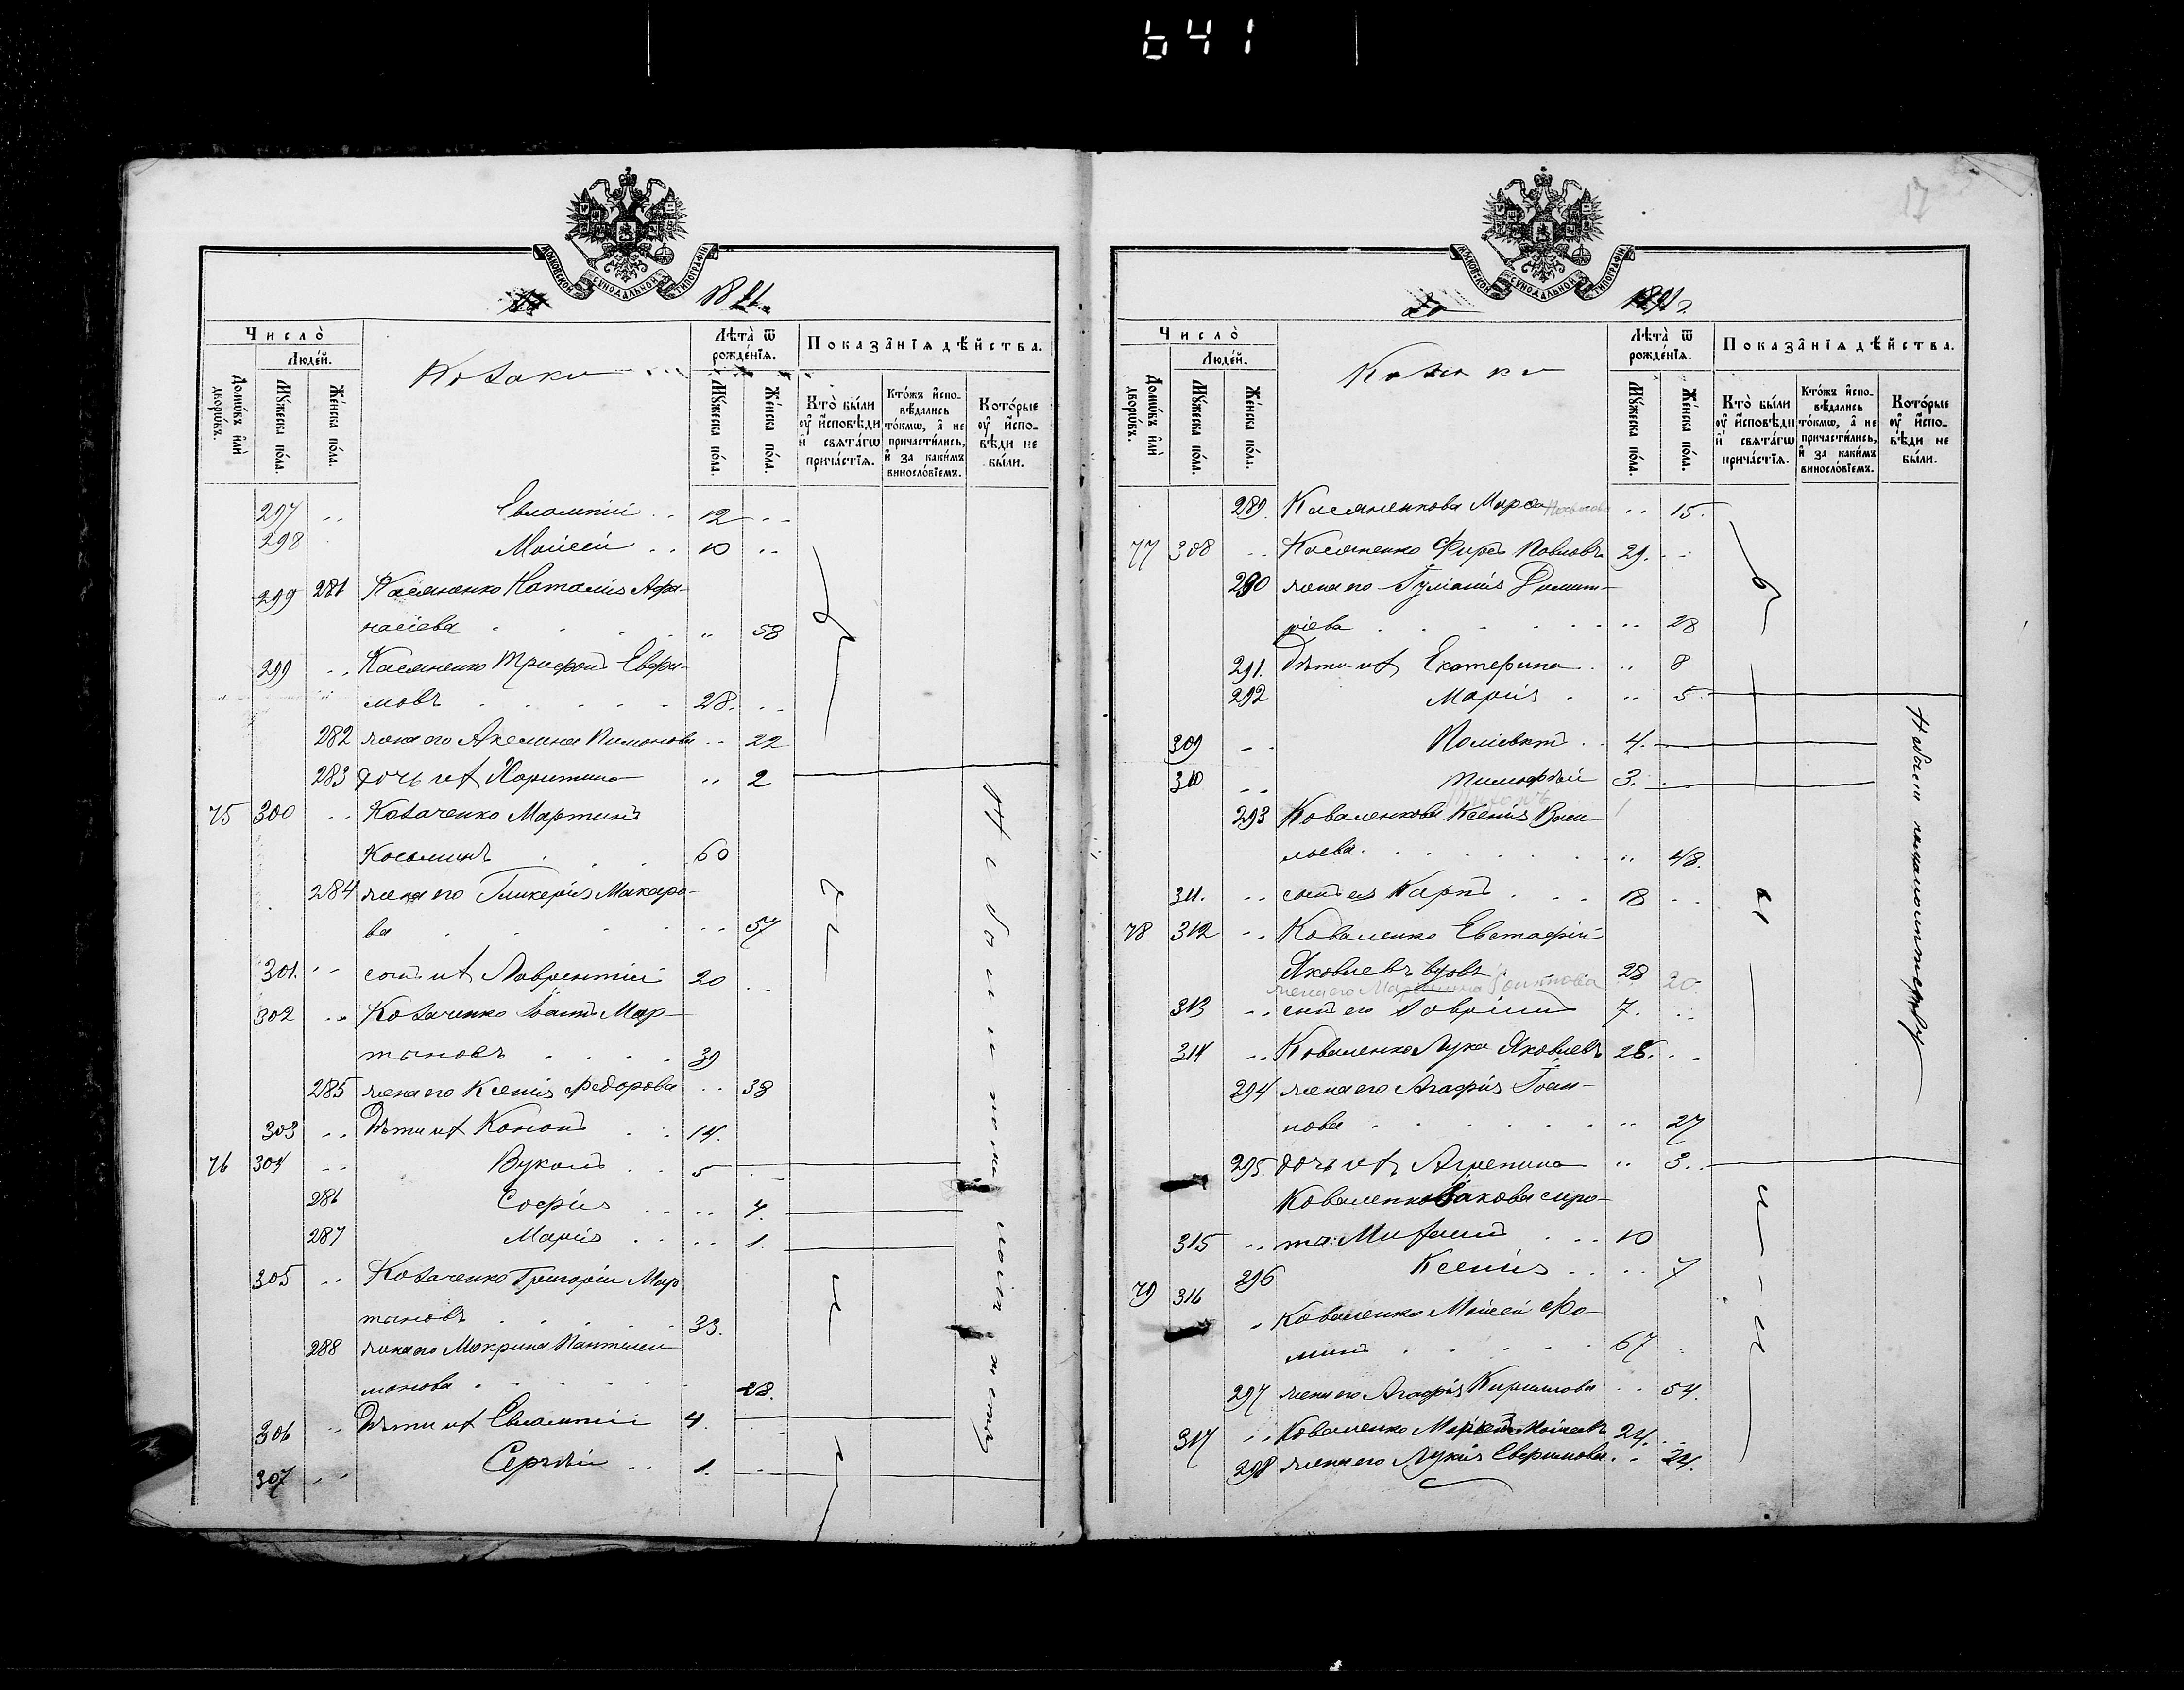 641
МОСКОВСКОЙ СУНОДАЛЬНОЙ ТИПОГРАФІИ
18
Число̀
Людей.
Домѡвъ и҆лѝ дворѡвъ.
Мꙋ́жеска по́ла.
Же́нска по́ла.
Козаки
Лѣ́та ѿ рожде́нїѧ.
Мꙋ́жеска по́ла.
Же́нска по́ла.
Показа̑нїѧ дѣ́йства.
Кто̀ бы́ли оу҆ и҆́сповѣди и҆ свѧта́гѡ прича́стїѧ.
Кто́жъ и҆спо-вѣ́дались то́кмѡ, а҆ не причасти́лись, и҆ за каки́мъ винослові́емъ.
Кото́рые оу҆ и҆́спо-вѣди не бы́ли.
297 .. Евлампій .. 12 ..
298 . Моисей .. 10 ..
299 281 Касяненко Наталія Афа-
насіева .. 58
299 .. Касяненко Трифонъ Евфи-
мовъ 28. ..
282 жена его Акелина Пимонова .. 22
283 дочь их Харитина .. 2
75 300 .. Козаченко Мартинъ
Косьминъ 60
284 жена его Гликерія Макаро-
ва .. 57
301. .. сынъ их Лаврентій 20 ..
302 .. Козаченко Іоанъ Мар-
тыновъ 39
285 жена его Ксенія Федорова .. 38
303 .. Дѣти их Кононъ .. 14.
76 304 .. Вуколъ .. 5
286 Софія .. .. 4.
287 Марія .. .. 1.
305 .. Козаченко Григорій Мар
тыновъ 33.
288 жена его Мокрина Пантилеи
монова 28.
306 .. Дѣти их Евлампій 4.
307 .. Сергѣй .. 1.
Не были по малолѣтству
17
МОСКОВСКОЙ СУНОДАЛЬНОЙ ТИПОГРАФІИ
Число̀
Людей.
Домѡвъ и҆лѝ дворѡвъ.
Мꙋ́жеска по́ла.
Же́нска по́ла.
Козаки
Лѣ́та ѿ рожде́нїѧ.
Мꙋ́жеска по́ла.
Же́нска по́ла.
Показа̑нїѧ дѣ́йства.
Кто̀ бы́ли оу҆ и҆́сповѣди и҆ свѧта́гѡ прича́стїѧ.
Кто́жъ и҆спо-вѣ́дались то́кмѡ, а҆ не причасти́лись, и҆ за каки́мъ винослові́емъ.
Кото́рые оу҆ и҆́спо-вѣди не бы́ли.
289. Касяненкова Марфа .. 15.
77 308 .. Касяненко Фирсъ Павловъ 29. ..
290 жена его Іуліанія Димит-
ріева .. 28
291. Дѣти их Екатерина .. 8
292 Марія .. 5.
309 .. Поліевктъ .. 4.
310 .. Тимофѣй 3.
293 Коваленкова Ксенія Васи-
льева .. 48.
311. .. сынъ ея Карпъ 18 ..
78 312 .. Коваленко Евстафій
Яковлевъ вдовъ 28
жена его 20
313 .. сынъ его Гавріилъ 7. ..
314 .. Коваленко Лука Яковлевъ 28. ..
294 жена его Агафія Іоан-
нова .. 27
295. дочь их Агрепина .. 3.
Коваленко Іакова сиро-
315 .. та: Михаилъ .. 10
296 Ксенія .. .. 7
79 316 . Коваленко Моисей Фо-
минъ 67
297 жена его Агафія Кирилова .. 54.
317 .. Коваленко Моисеевъ 24. ..
298 жена его Лукія Евфимова .. 24.
Не были по малолѣтству